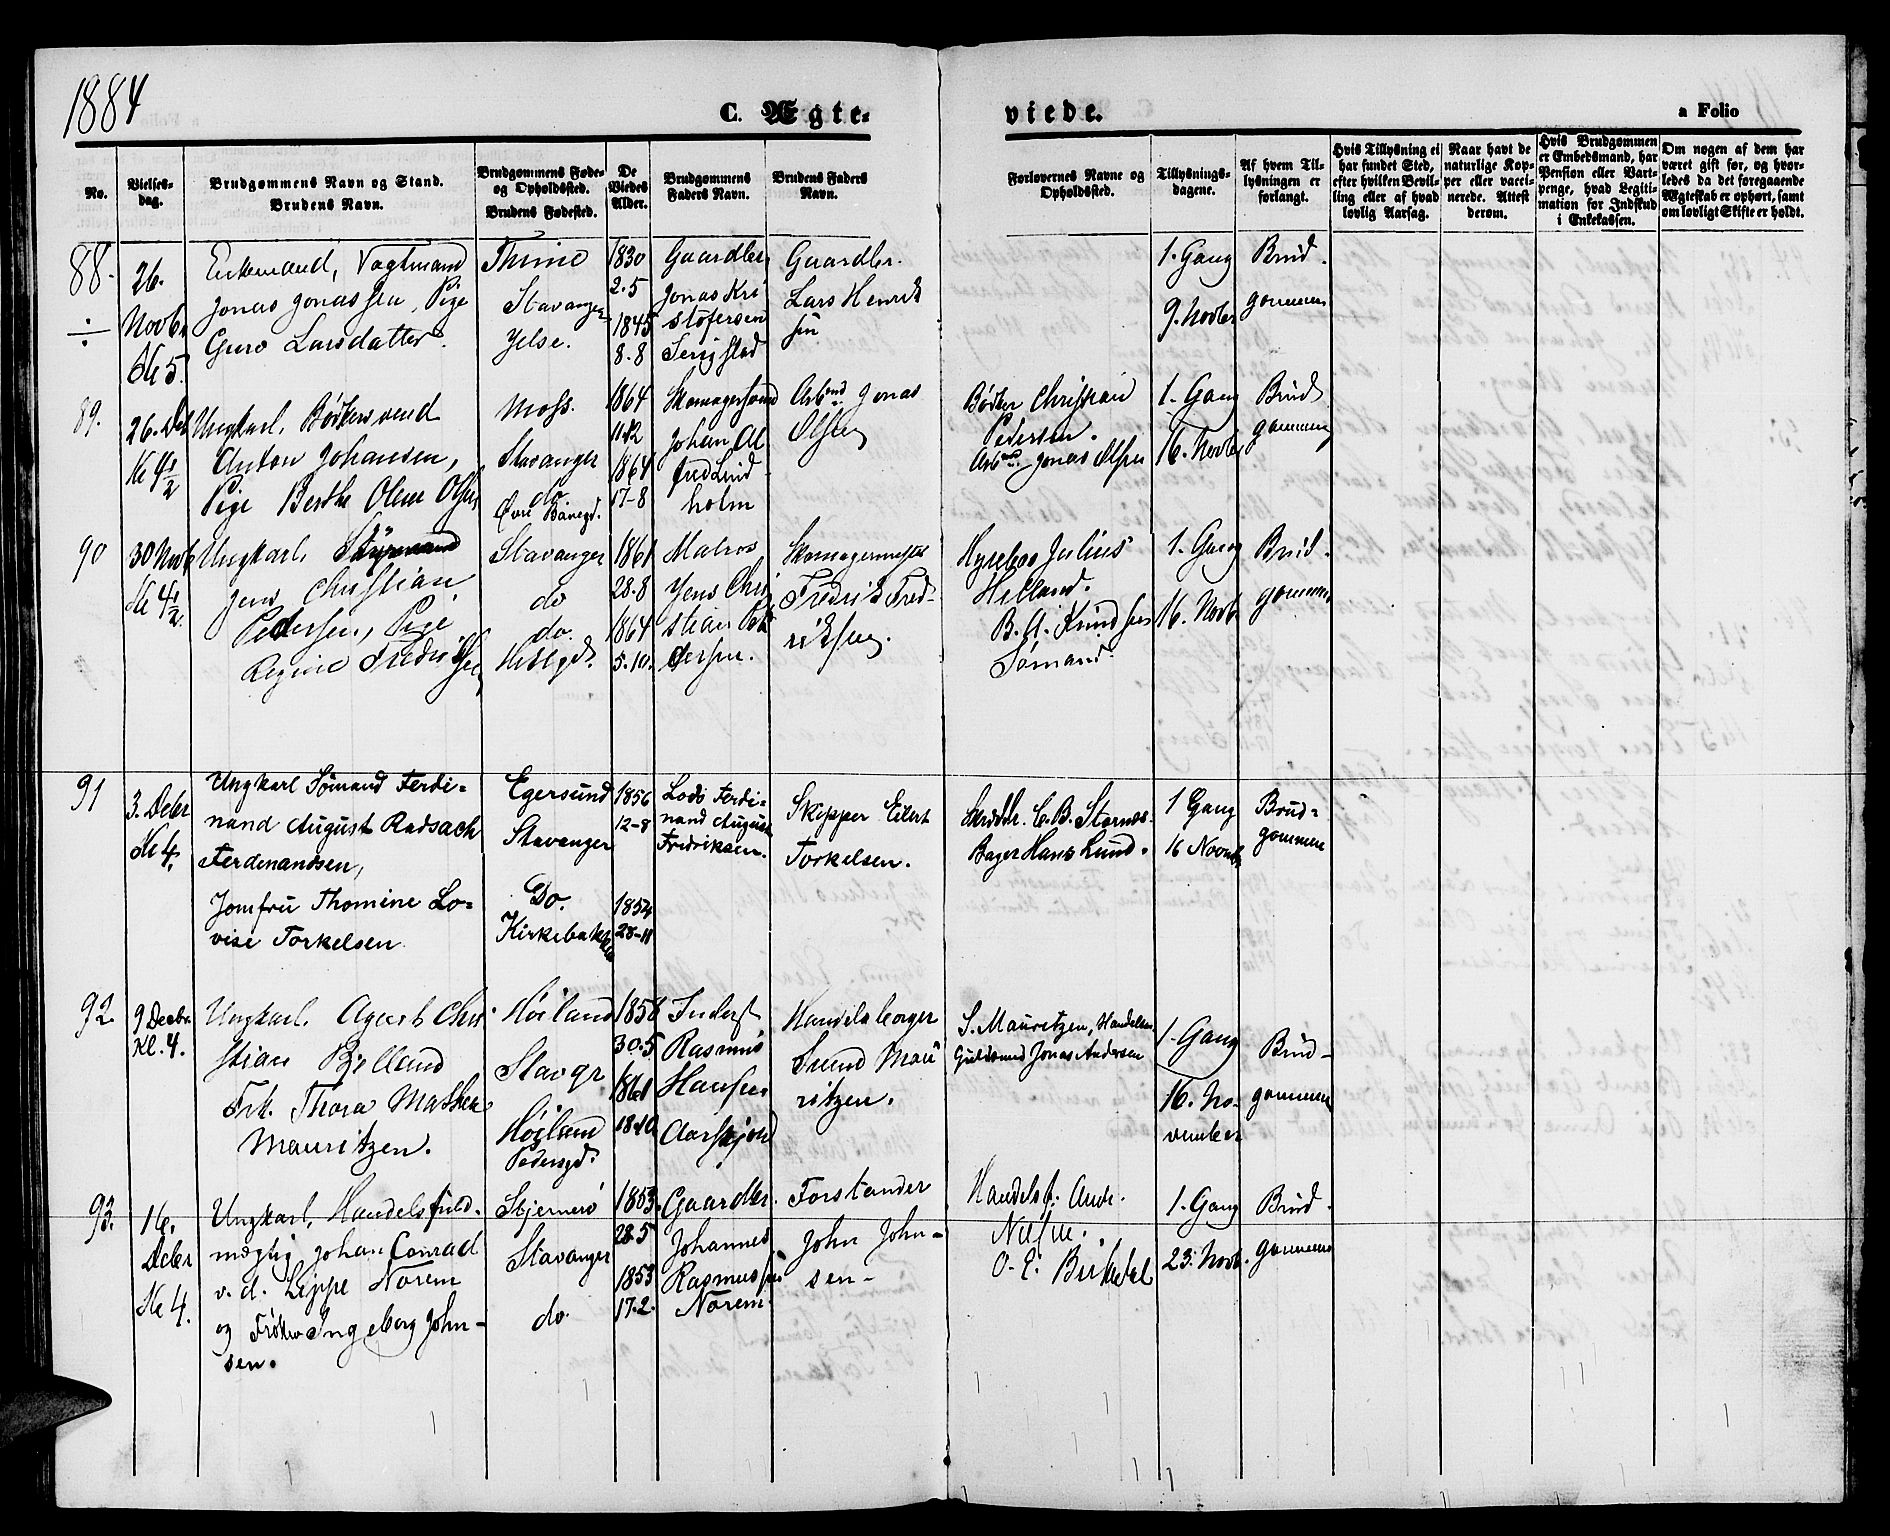 1884
C. Ægte-
viede.
a Folio
No.
Vielses-
dag.
Brudgommens Navn og Stand.
Brudens Navn.
Brudgommens Føde-
og Opholdssted.
Brudens Fødested.
De
Viedes
Alder.
Brudgommens
Faders Navn.
Brudens Faders
Navn.
Forlovernes Navne og
Opholdssted.
Tillysnings-
dagene.
Af hvem Til-
lysningen er
forlangt.
Hvis Tillysning ei
har fundet Sted,
efter hvilken Bevil-
ling eller af hvad
lovlig Aarsag.
Naar havt de
naturlige Kop-
per eller vacci-
nerede. Attest
derom.
Hvis Brudgommen
er Embedsmand, har
Pension eller Vart-
penge, hvad Legiti-
mation for Indskud
i Enkekassen.
Om nogen af dem har
været gift før, og hvor-
ledes da det foregaaende
Ægteskab er ophørt, samt
om lovligt Skifte er holdt.
88.
÷
26.
Novbr
Kl 5.
Enkemand, Vagtmand
Jonas Jonassen, Pige
Guro Larsdatter.
Thime
Stavanger
Jelse.
1830
2.5
1845
8-8
Gaardbr.
Jonas Kri
stofersen
Serigstad
Gaardbr.
Lars Henrik
sen
1. Gang
9. Novbr
Brud.
gommen
89.
26. Det
Kl 4 1/2
Ungkarl. Bødkersvend
Anton Johansen,
Pige Berthe Oline Olsen
Moss.
Stavanger
do
Øvre Banegd.
1864
11-12
1864
17-8
Skomagersvend
Johan Al
fred Lind-
holm
Arbmd. Jonas
Olsen
Bødker Christian
Pedersen.
Arbmd. Jonas Olsen
1. Gang
16. Novbr
Brud
gommen
90
30 Novb
Kl 4 1/2.
Ungkarl. Styrmand
Jens Christian
Pedersen, Pige
Regine Fredriksen
Stavanger
do
do.
Hetlgd.
1861
28-8
1864
5.10.
Matros
Jens Chri
stian Pe
dersen.
Skomagermester
Fredrik Fred-
riksen.
Hyrebas Julius
Helland.
B. A. Knudsen
Sømand.
1. Gang
16. Novb.
Brud.
gommen
91
3. Debr
Kl 4.
Ungkarl Sømand Ferdi-
nand August Radsach
Ferdinandsen,
Jomfru Thomine Lo-
vise Torkelsen
Egersund
Stavanger
Do.
Kirkebakken
1856
12-8
1854
28-11
Lods Ferdi-
nand August
Fredriksen.
Skipper Eilert
Torkelsen.
Skrædr. C. B. Stornes.
Bager Hans Lund.
1 Gang
16 Novmb
Brud-
gommen
92.
9 Decbr.
Kl. 4.
Ungkarl. Agust Chri
stian Bjelland
Frk. Thora Mathea
Mauritzen.
Høiland
Stavgr
Høiland
Pedersgd.
1858
30.5
1861
18.10
Inderst
Rasmus
Hansen
Aarskjord
Handelsborger
Svend Mau
ritzen.
S. Mauritzen, Handelsm.
Guldsmed Jonas Andersen
1. Gang
16. No-
vember
Brud-
gommen
93.
16.
Debr
Kl 4.
Ungkarl, Handelsfuld-
mægtig Johan Conrad
v. d. Lippe Norem
og Frøken Ingeborg John-
sen.
Stjernerø
Stavanger
do.
1853.
28.5
1853
17.2.
Gaardbr.
Johannes
Rasmussen
Norem.
Forstander
John John-
sen-
Handelsf. Andr.
Nilsen.
O. E. Birkedal
1. Gang
23. Novb.
Brud-
gommen